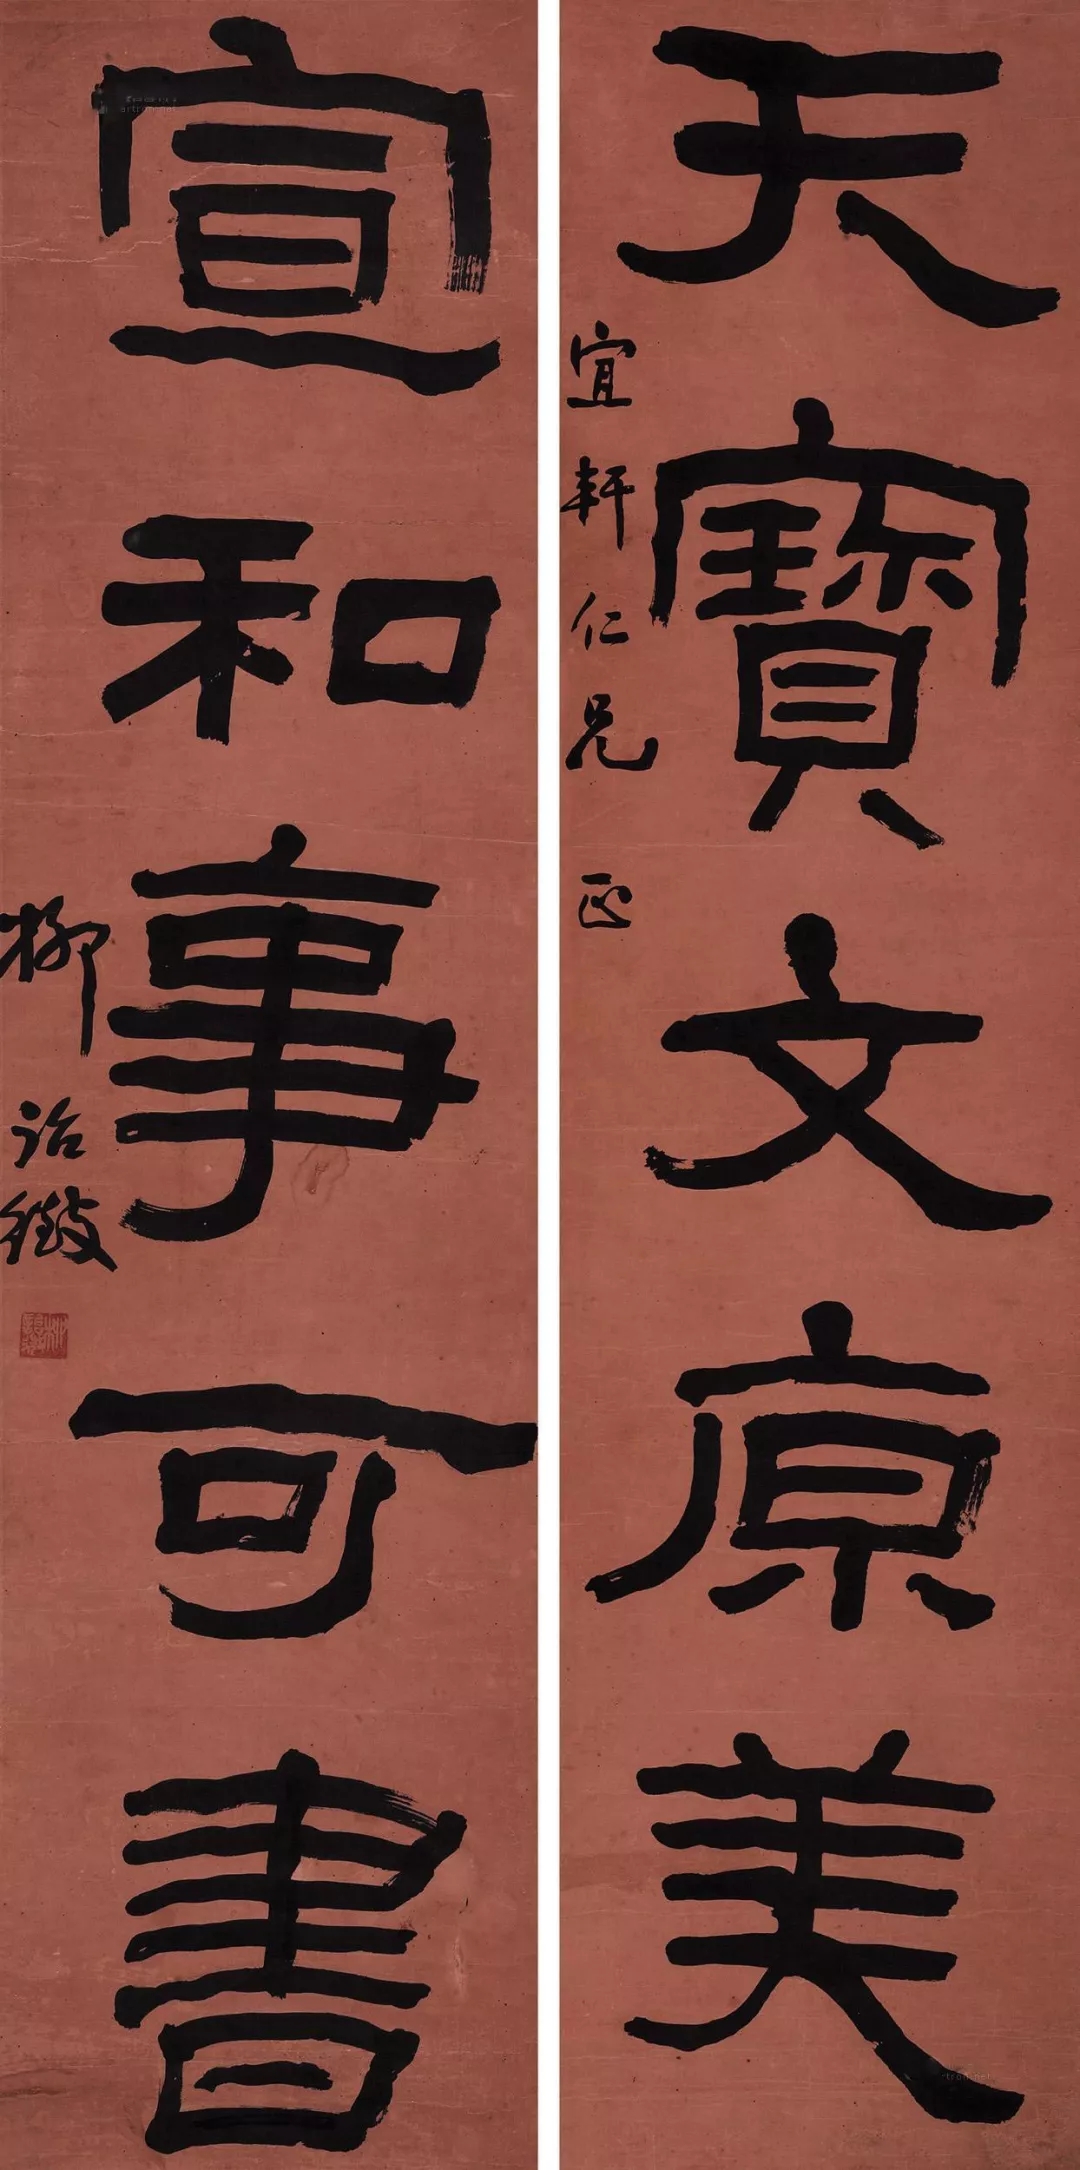 天寳文原美
宜軒仁兄正
宣和事可書
柳詒徵